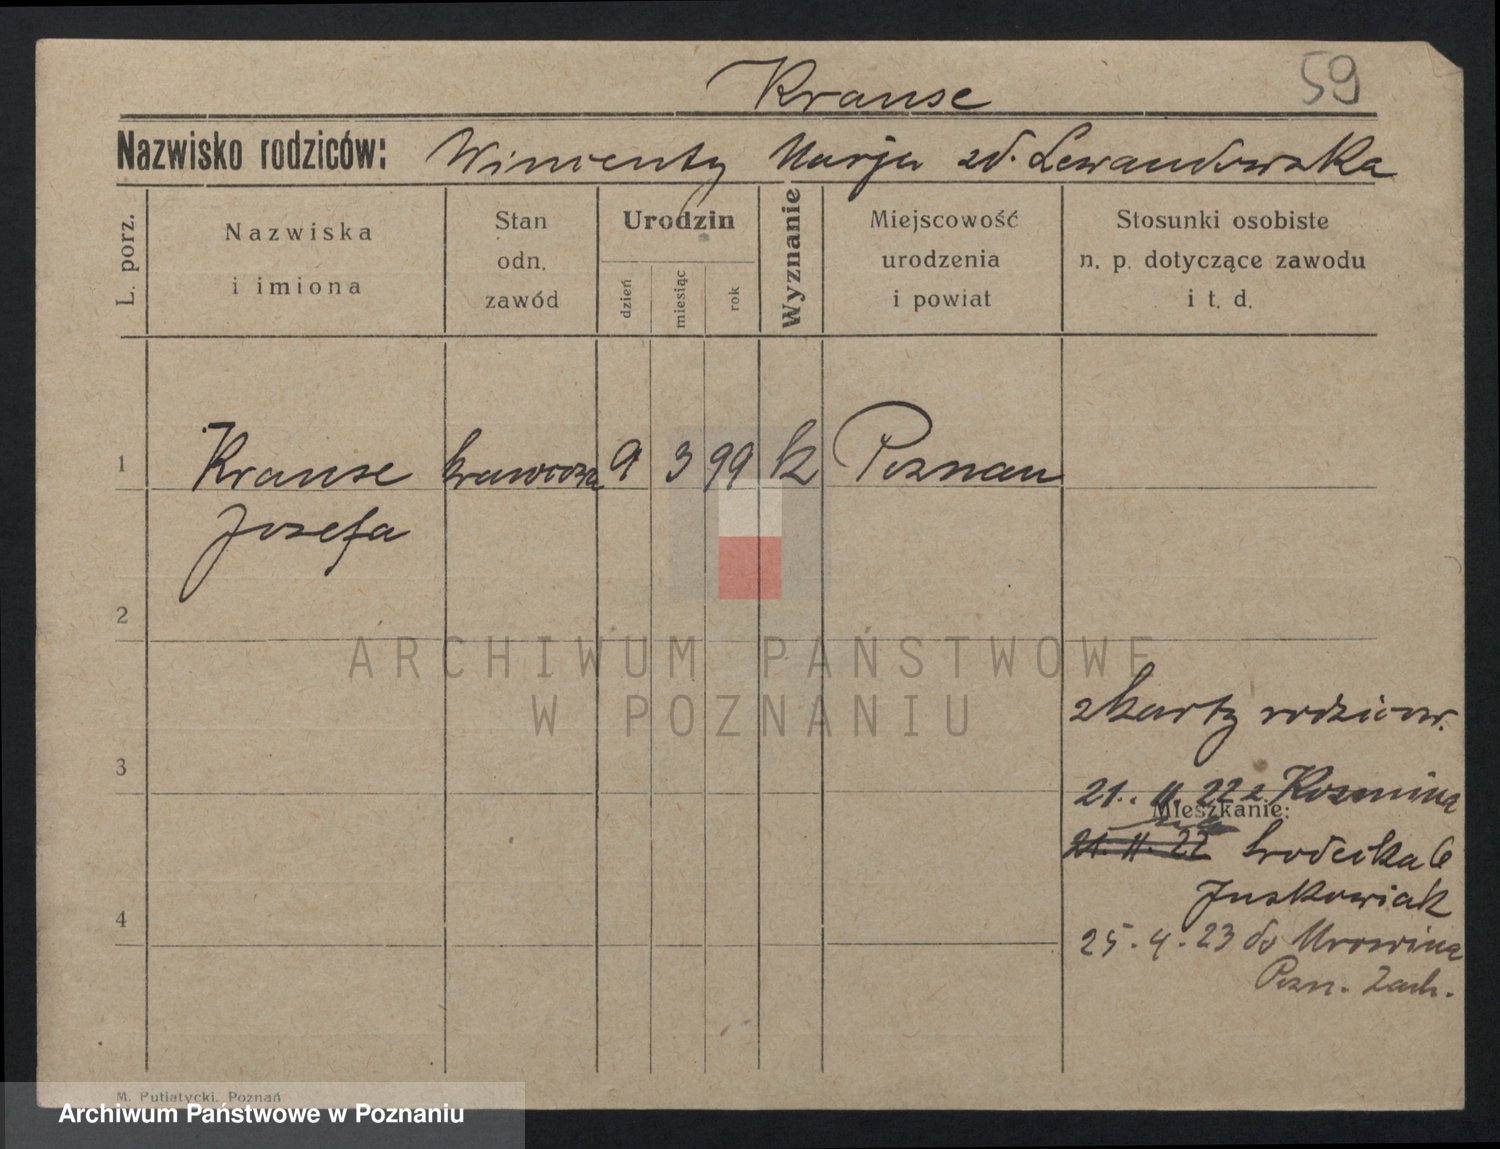 59
Krause
Nazwisko rodziców: Wincenty Marja zd. Lewandowska
L. porz.
Nazwiska
i imiona
Stan
odn.
zawód
Urodzin
dzień
miesiąc
rok
Wyznanie
Miejscowość
urodzenia
i powiat
Stosunki osobiste
n. p. dotyczące zawodu
i t. d.
1 Krause krawcowa 9 3 99 k Poznan
Jozefa
2
ARCHIWUM PAŃSTWOWE
W POZNANIU
z karty rodzicow.
3
21. 11. 22 z Kozmina
Mieszkanie:
21. 11. 22 6
Juskowiak
4
25. 4. 23 do Mrowina
Pozn. Zach.
M. Putiatycki, Poznań
Archiwum Państwowe w Poznaniu